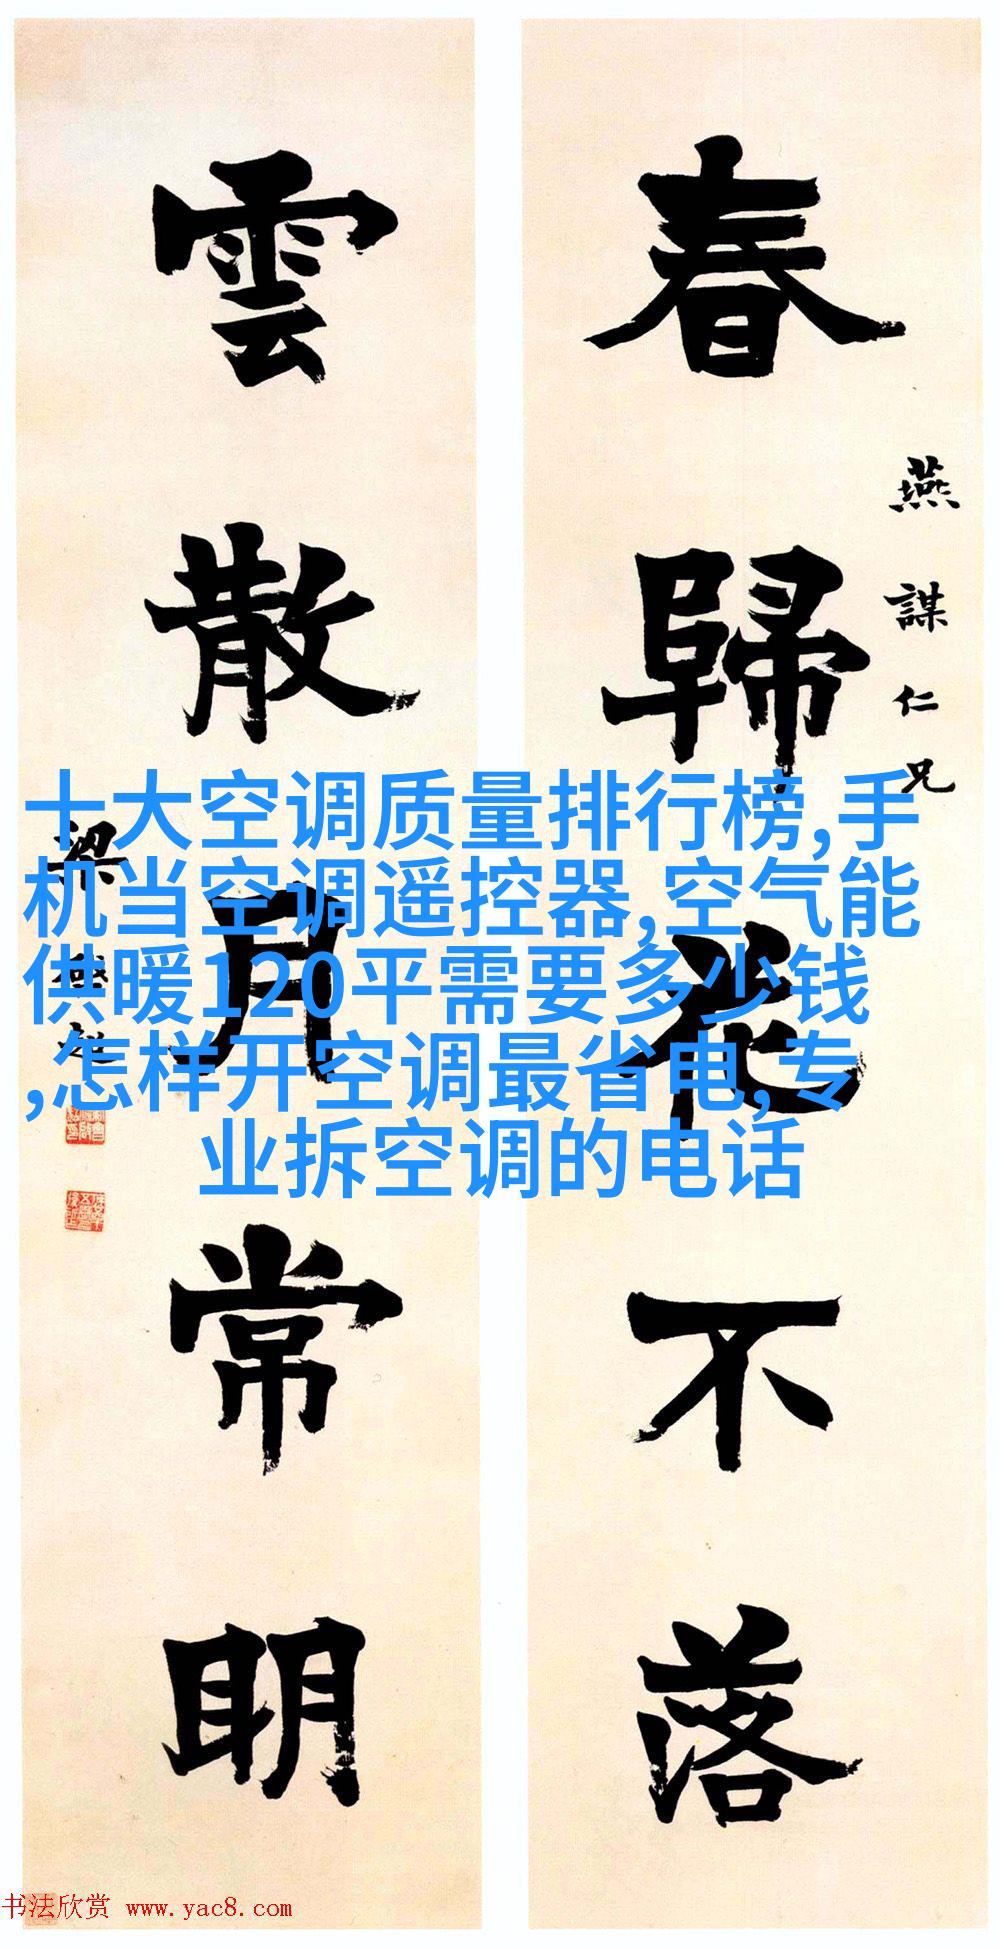 春歸花不落
燕謀仁兄
雲散月常眀
梁啟超
十大空调质量排行榜,手
机当空调遥控器,空气能
供暖120平需要多少钱
,怎样开空调最省电,专
业拆空调的电话
书法欣赏 www.yac8.com